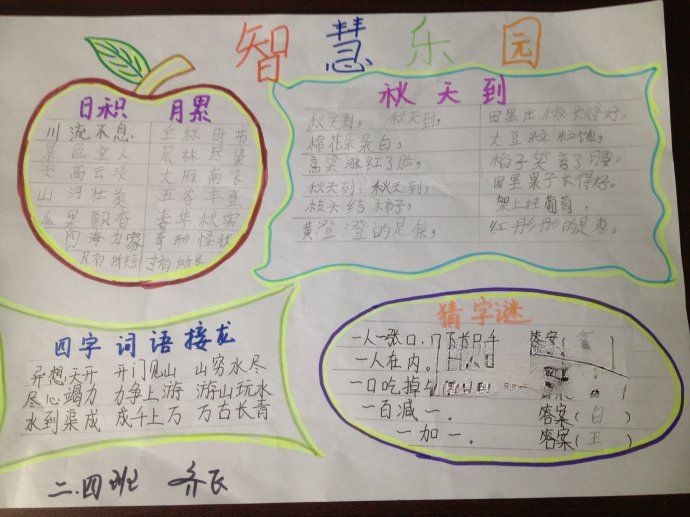 智慧乐园
日积 月累
川流不息
景色宜人 层林尽染
天高云淡 大雁南飞
山河壮美 五谷丰登
瓜果飘香 春华秋实
四海为家 奇形怪状
尺有所短 寸有所长
秋天到
秋天到，秋天到， 田里庄稼长得好。
棉花朵朵白， 大豆粒粒饱。
高粱涨红了脸， 稻子笑弯了腰。
秋天到，秋天到， 田里果子长得好。
枝头结柿子， 架上挂葡萄。
黄澄澄的是梨， 红彤彤的是枣。
四字词语接龙
异想天开 开门见山 山穷水尽
尽心竭力 力争上游 游山玩水
水到渠成 成千上万 万古长青
猜字谜
一人一张口，口下长只手 答案
一人在内。
一口吃掉
一百减一。 答案（白）
一加一。 答案（王）
二.四班